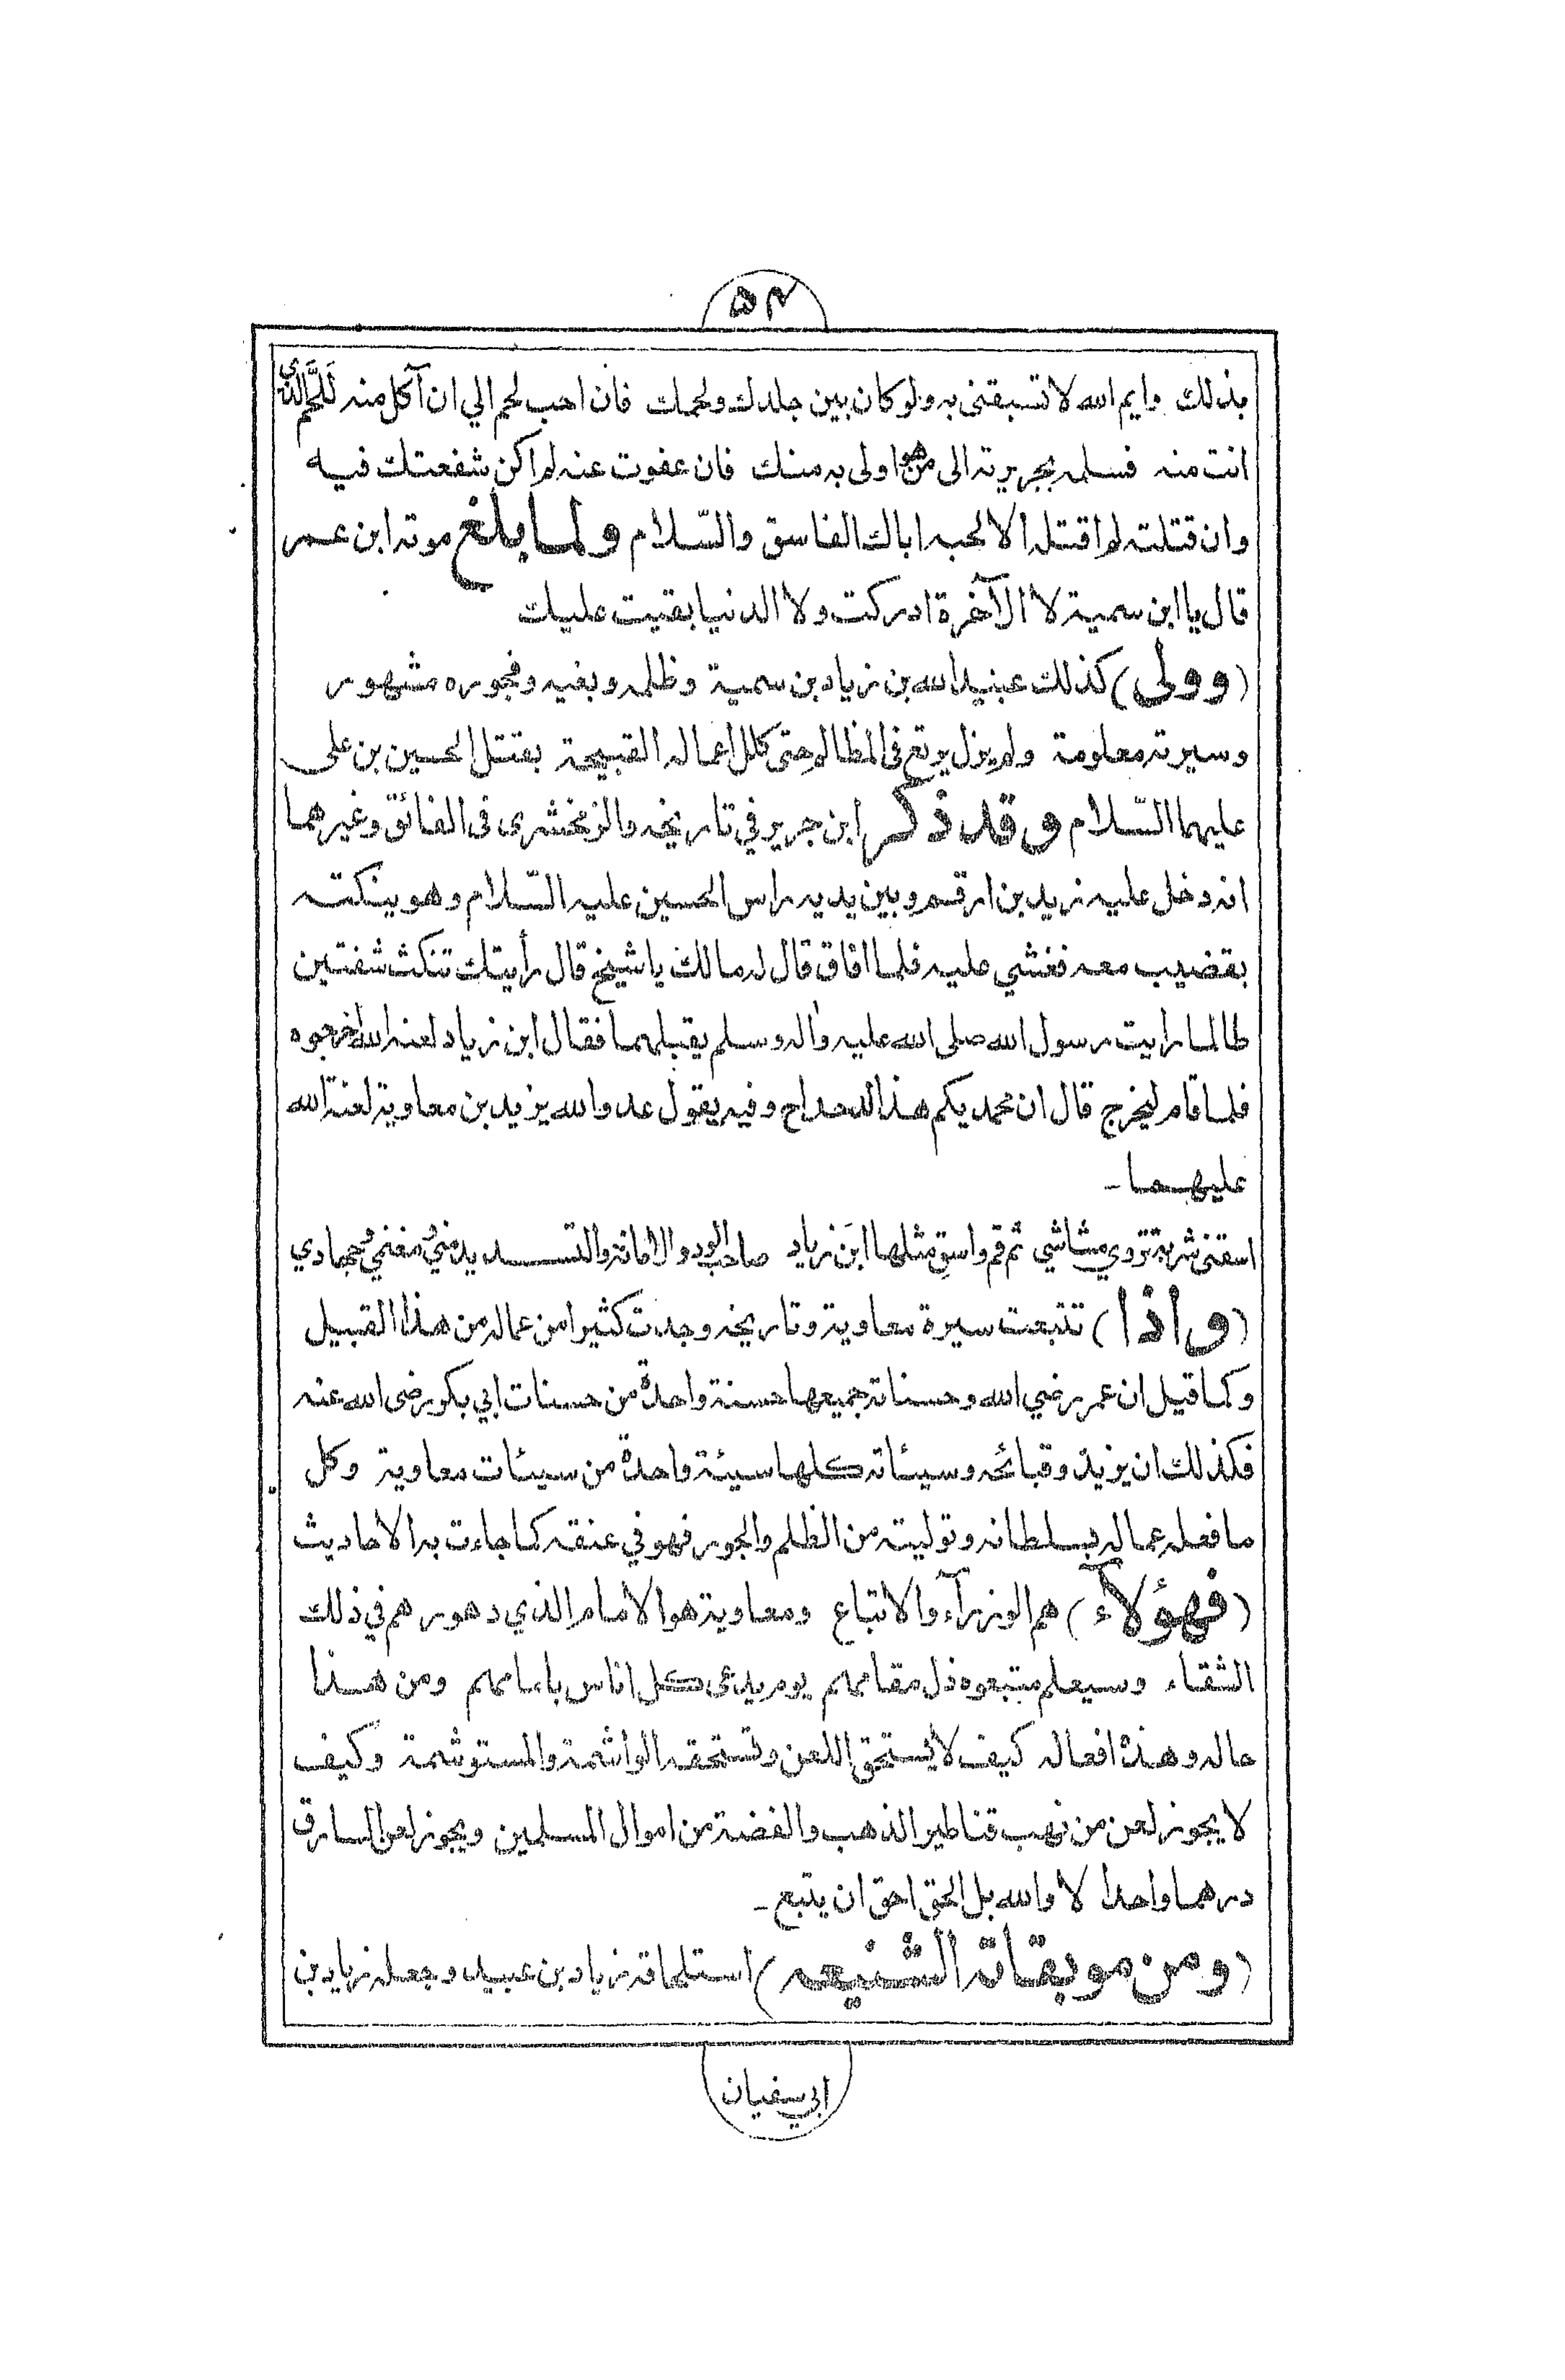 ٥٤
بذلك وايم الله لا تسبقنى به ولو كان بين جلدك ولحمك فان احب لحم الي ان آكل منه لَلَّحم الذي
انت منه فسلمه بجريرته الى من هو اولى به منك فان عفوت عنه لم اكن شفعتك فيه
وان قتلته لم اقتله الا لحبه اباك الفاسق والسّلام ولما بلغ موته ابن عمر
قال يا ابن سمية لا الآخرة ادركت ولا الدنيا بقيت عليك
(وولى) كذلك عبيد الله بن زياد بن سمية وظلمه وبغيه وفجوره مشهور
وسيرته معلومة ولم يزل يرتع فى المظالم حتى كلل اعماله القبيحة بقتل الحسين بن على
عليهما السّلام وقد ذكر ابن جرير في تاريخه والزمخشرى فى الفائق وغيرهما
انه دخل عليه زيد بن ارقم وبين يديه راس الحسين عليه السّلام وهو ينكته
بقضيب معه فغشي عليه فلما افاق قال له مالك يا شيخ قال رأيتك تنكث شفتين
طالما رايت رسول الله صلى الله عليه واله وسلم يقبلهما فقال ابن زياد لعنه الله اخرجوه
فلما قام ليخرج قال ان محمديكم هذا الدحداح وفيه يقول عدو الله يزيد بن معاوية لعنة الله
عليهما -
اسقنى شربة تروي مشاشي ثم قم واسق مثلها ابنَ زياد صاحب الود والامانة والتسديد مني ومغنمي وجهادي
(واذا) تتبعت سيرة معاوية وتاريخه وجدت كثيرا من عماله من هذا القبيل
وكما قيل ان عمر رضي الله وحسناته جميعها حسنة واحدة من حسنات ابي بكر رضى الله عنه
فكذلك ان يزيد وقبائحه وسيئاته كلها سيئة واحدة من سيئات معاوية وكل
ما فعله عماله بسلطانه وتوليته من الظلم والجور فهو في عنقه كما جاءت به الاحاديث
(فهؤلآء) هم الوزرآء والاتباع ومعاوية هو الامام الذي دهورهم في ذلك
الشقاء وسيعلم متبعوه ذل مقامهم يوم يدعى كل اناس بامامهم ومن هذا
حاله وهذه افعاله كيف لا يستحق اللعن وتستحقه الواشمة والمستوشمة وكيف
لا يجوز لعن من نهب قناطير الذهب والفضة من اموال المسلمين ويجوز لعن السارق
درهما واحدا لا والله بل الحق احق ان يتبع -
(ومن موبقاته الشنيعه) استلحاقه زياد بن عبيد وجعله زياد بن
ابي سفيان